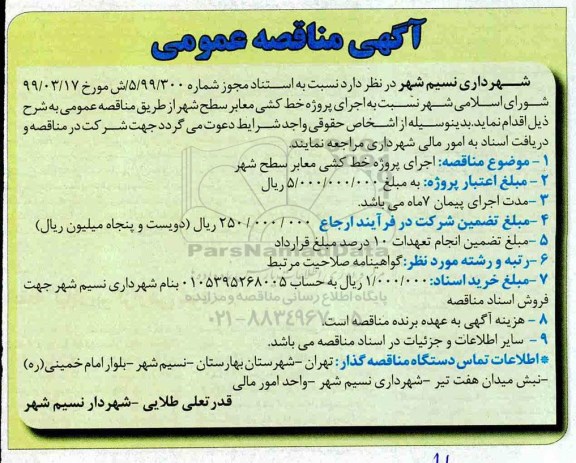 آگهی مناقصه عمومی
شهرداری نسیم شهر در نظر دارد نسبت به استناد مجوز شماره ۵/۹۹/۳۰۰/ش مورخ ۹۹/۰۳/۱۷
شورای اسلامی شهر نسبت به اجرای پروژه خط کشی معابر سطح شهر از طریق مناقصه عمومی به شرح
ذیل اقدام نماید. بدینوسیله از اشخاص حقوقی واجد شرایط دعوت می گردد جهت شرکت در مناقصه و
دریافت اسناد به امور مالی شهرداری مراجعه نمایند.
۱ - موضوع مناقصه: اجرای پروژه خط کشی معابر سطح شهر
۲ - مبلغ اعتبار پروژه: به مبلغ ۵/۰۰۰/۰۰۰/۰۰۰ ریال
۳ -مدت اجرای پیمان ۷ماه می باشد.
۴ -مبلغ تضمین شرکت در فرآیند ارجاع ۲۵۰/۰۰۰/۰۰۰ ریال (دویست و پنجاه میلیون ریال)
۵ -مبلغ تضمین انجام تعهدات ۱۰ درصد مبلغ قرارداد
ParsNamadData
۶ -رتبه و رشته مورد نظر: گواهینامه صلاحیت مرتبط
۷ -مبلغ خرید اسناد: ۱/۰۰۰/۰۰۰ ریال به حساب ۰۱۰۵۳۹۵۲۶۸۰۰۵ بنام شهرداری نسیم شهر جهت
فروش اسناد مناقصه
پایگاه اطلاع رسانی مناقصه و مزایده
۰۲۱-۸۸۳۴۹۶۷۰-۵
۸ - هزینه آگهی به عهده برنده مناقصه است.
۹ - سایر اطلاعات و جزئیات در اسناد مناقصه می باشد.
*اطلاعات تماس دستگاه مناقصه گذار: تهران -شهرستان بهارستان -نسیم شهر -بلوار امام خمینی(ره)
-نبش میدان هفت تیر -شهرداری نسیم شهر -واحد امور مالی
قدرتعلی طلایی -شهردار نسیم شهر